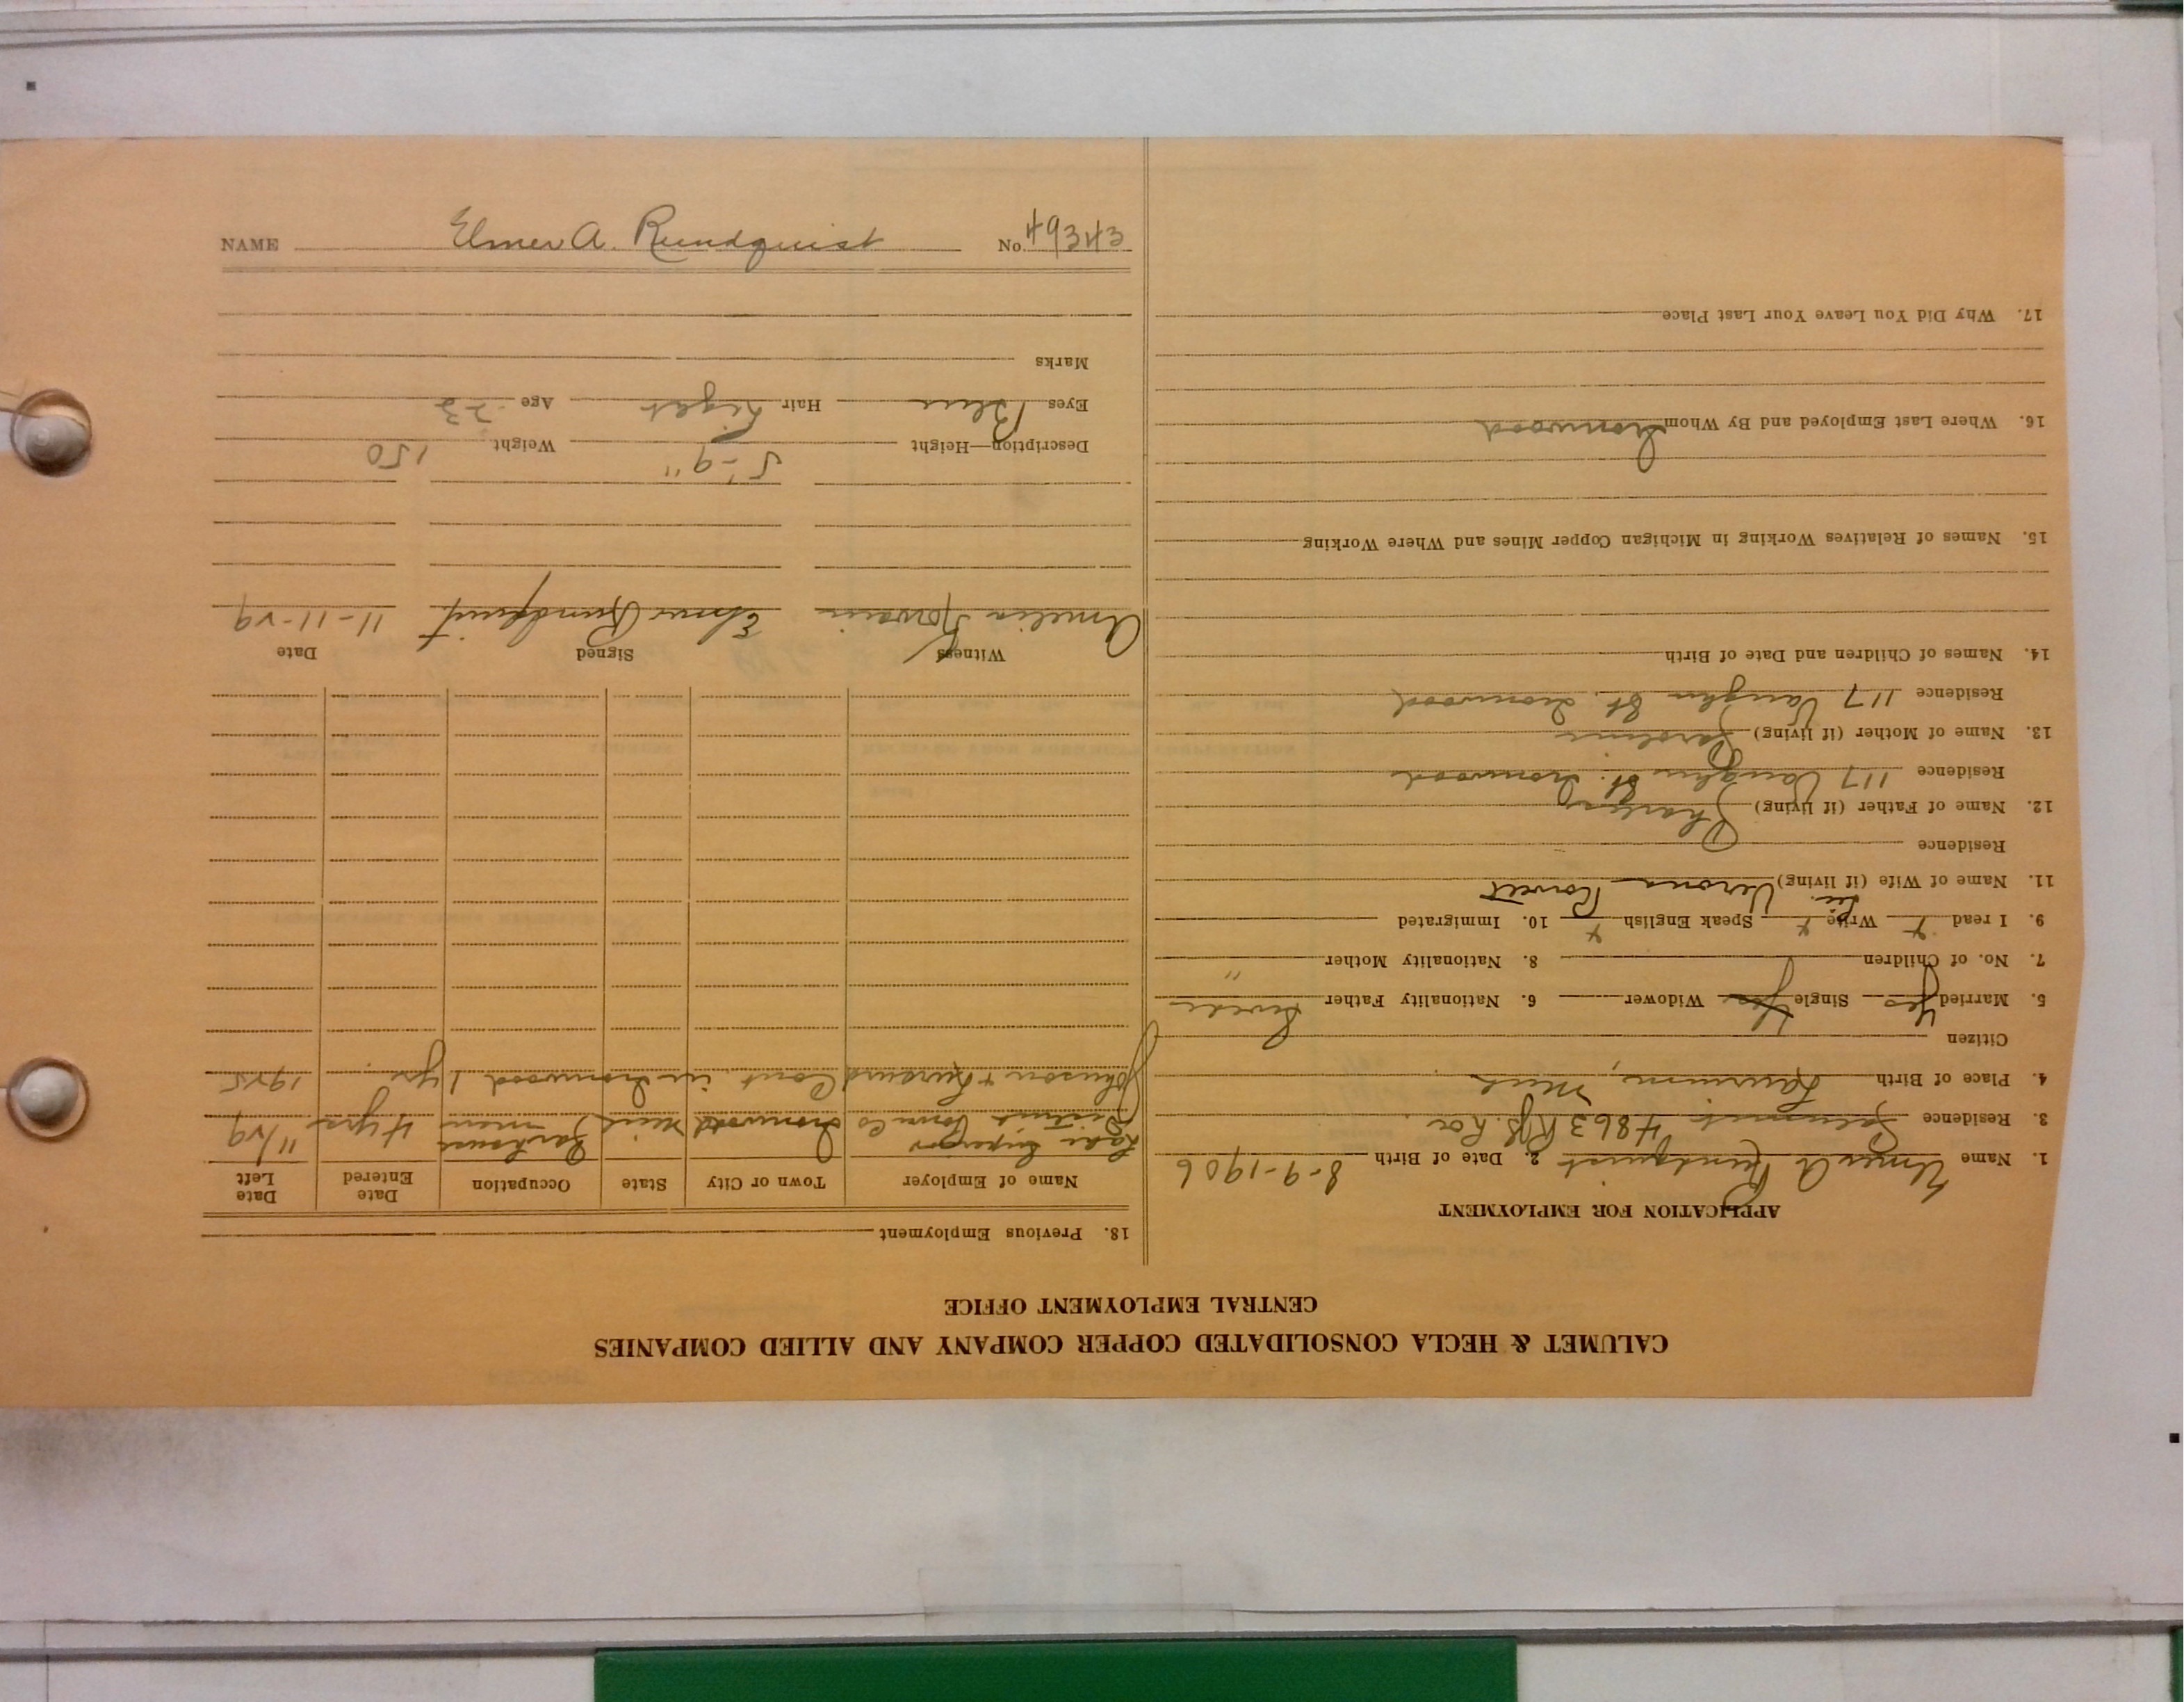 CALUMET & HECLA CONSOLIDATED COPPER COMPANY AND ALLIED COMPANIES
CENTRAL EMPLOYMENT OFFICE
APPLICATION FOR EMPLOYMENT
1. Name Elmer A Rundquist 2. Date of Birth 8-9-1906
3. Residence 4863
4. Place of Birth Mich
Citizen
5. Married Yes Single Yes Widower 6. Nationality Father Swede
7. No. of Children 8. Nationality Mother "
9. I read x Write x Speak English x 10. Immigrated
11. Name of Wife (if living) Verona
Residence
12. Name of Father (if living) Charles
Residence 117 Vaughn St. Ironwood
13. Name of Mother (if living) Caroline
Residence 117 Vaughn St. Ironwood
14. Names of Children and Date of Birth
15. Names of Relatives Working in Michigan Copper Mines and Where Working
16. Where Last Employed and By Whom Ironwood
17. Why Did You Leave Your Last Place
18. Previous Employment
Name of Employer Town or City State Occupation Date Entered Date Left
Lake Superior
District Power Co Ironwood Mich man 4 yrs 11/29
Johnson + Cont in Ironwood 1 yr 1925
Witness Signed Date
Amelia Elmer Rundquist 11-11-29
Description—Height 5'-9" Weight 150
Eyes Blue Hair Light Age 23
Marks
NAME Elmer A. Rundquist No. 49343